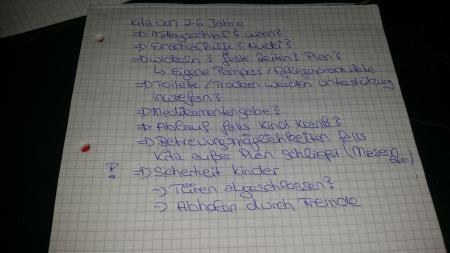 Kita von 2-6 Jahre
=> Mittagsschlaf? wann?
=> Einschlafhilfe? Nucki?
=> Wickeln? feste Zeiten? Plan?
↳ Eigene Pampers / Pflegeprodukte
=> Toilette / Trocken werden unterstützung
inwiefern?
=> Medikamentengabe?
=> Ablauf falls Kind krank?
=> Betreuungsmöglichkeiten falls
Kita außer Plan schließt (Masern
=> Sicherheit Kinder
-> Türen abgeschlossen?
-> Abholen durch Fremde